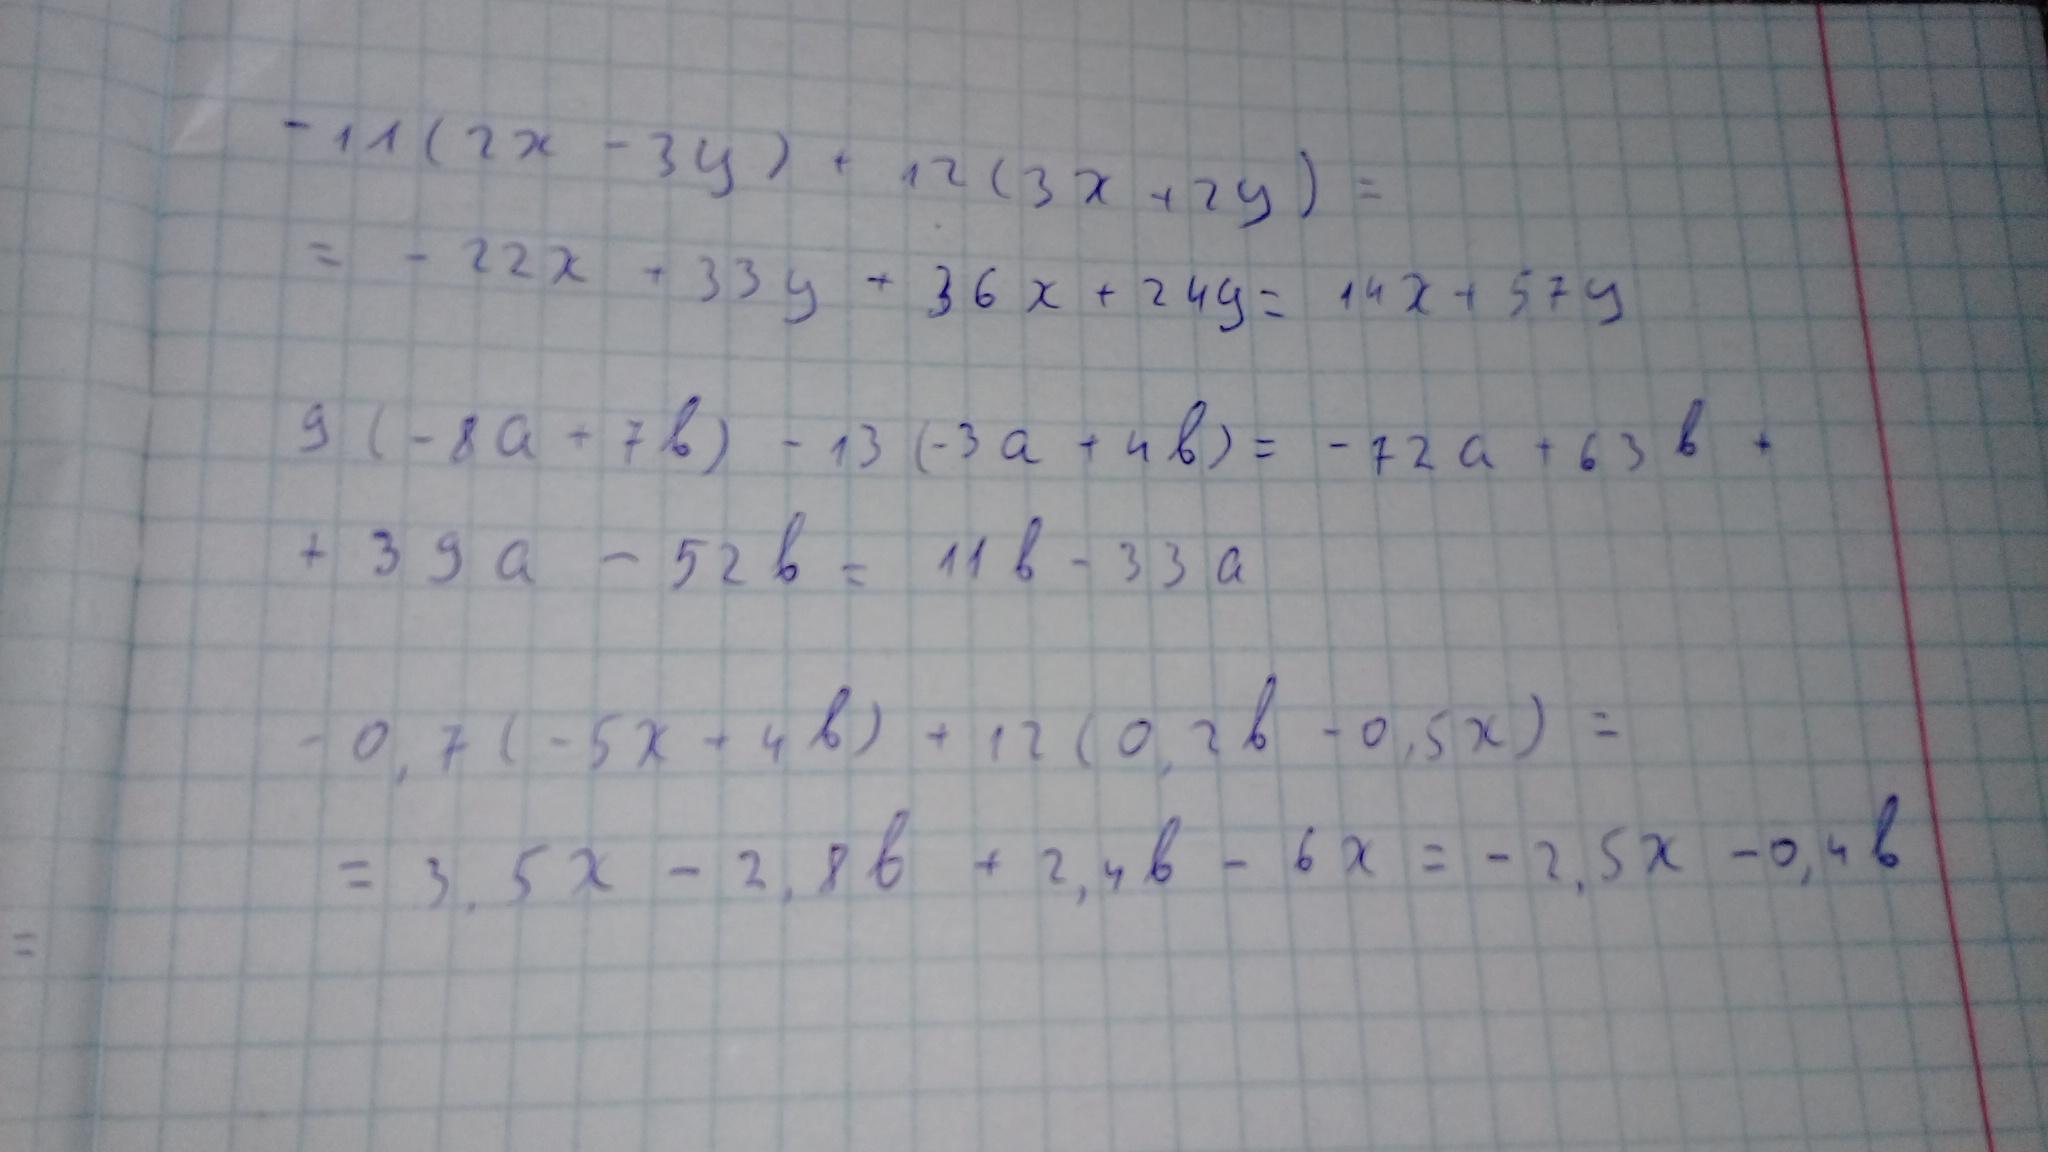 -11(2x - 3y) + 12(3x + 2y) =
= - 22x + 33y + 36x + 24y = 14x + 57y
9(-8a + 7b) - 13(-3a + 4b) = -72a + 63b +
+ 39a - 52b = 11b - 33a
- 0,7(-5x + 4b) + 12(0,2b - 0,5x) =
= 3,5x - 2,8b + 2,4b - 6x = -2,5x - 0,4b
=